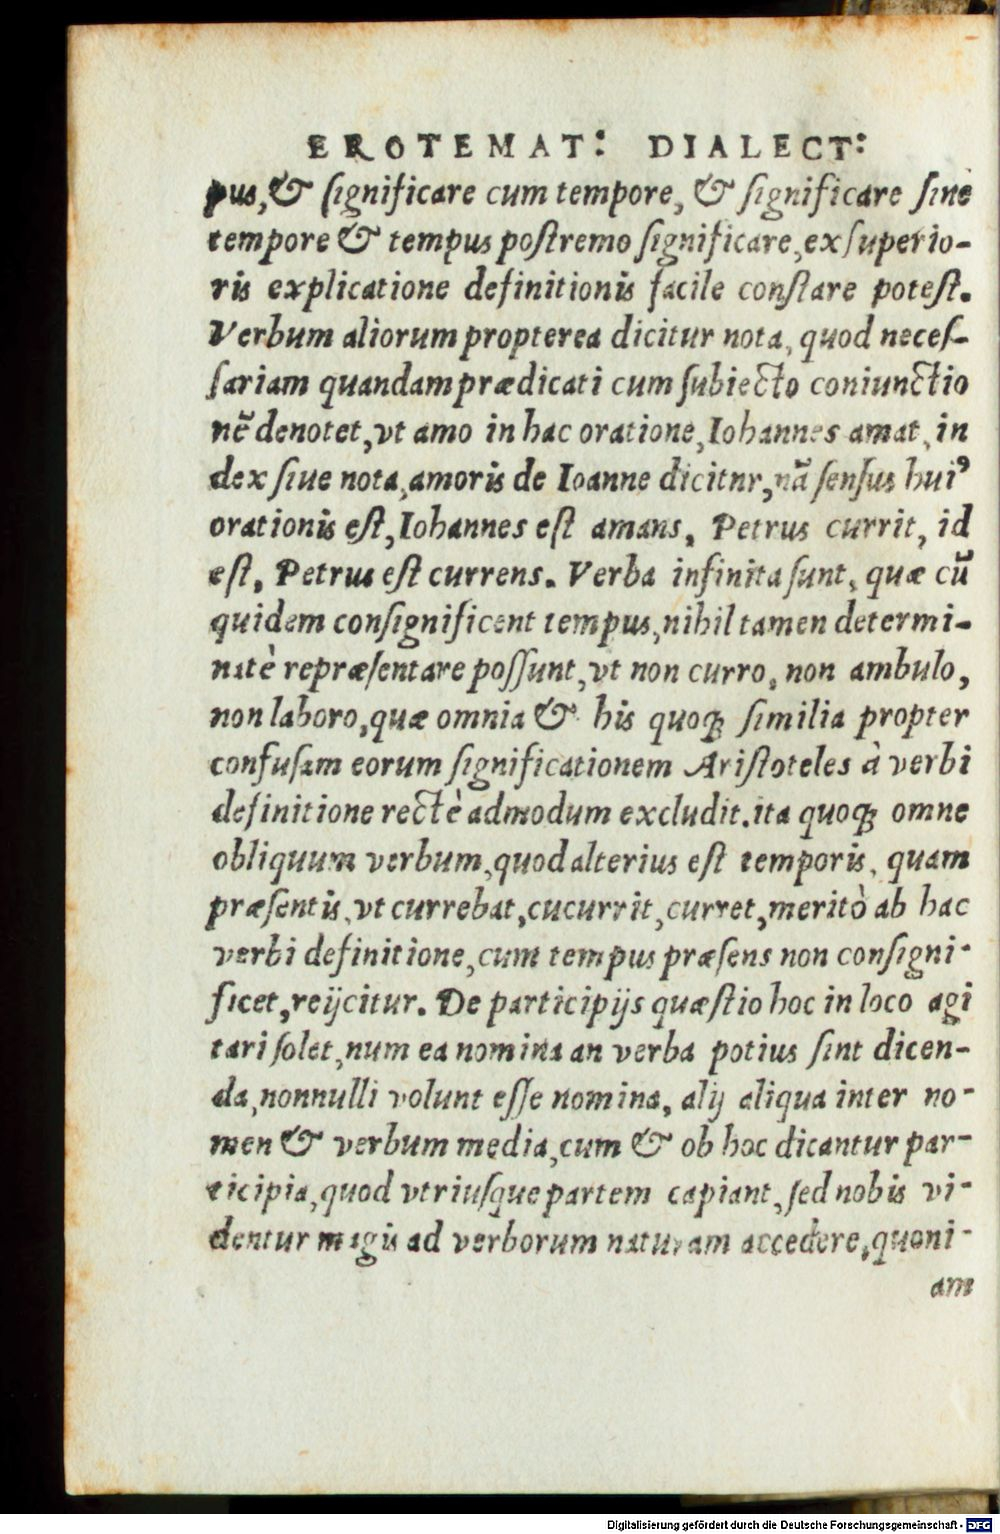 EROTEMAT: DIALECT:
pus, & ſignificare cum tempore, & ſignificare ſine
tempore & tempus poſtremo ſignificare, ex ſuperio-
ris explicatione definitionis facile conſtare poteſt.
Verbum aliorum propterea dicitur nota, quod neceſ-
ſariam quandam prædicati cum ſubiecto coniunctio
nẽ denotet, vt amo in hac oratione, Iohannes amat, in
dex ſiue nota, amoris de Ioanne dicitnr, nã ſenſus huiꝰ
orationis eſt, Iohannes eſt amans, Petrus currit, id
eſt, Petrus eſt currens. Verba infinita ſunt, quæ cũ
quidem conſignificent tempus, nihil tamen determi-
natè repræſentare poſſunt, vt non curro, non ambulo,
non laboro, quæ omnia & his quoqꝫ ſimilia propter
confuſam eorum ſignificationem Ariſtoteles à verbi
definitione rectè admodum excludit. ita quoqꝫ omne
obliquum verbum, quod alterius eſt temporis, quam
præſentis, vt currebat, cucurrit, curret, meritò ab hac
verbi definitione, cum tempus præſens non conſigni-
ficet, reijcitur. De participijs quæſtio hoc in loco agi
tari ſolet, num ea nomina an verba potius ſint dicen-
da, nonnulli volunt eſſe nomina, alij aliqua inter no-
men & verbum media, cum & ob hoc dicantur par-
ticipia, quod vtriuſque partem capiant, ſed nobis vi-
dentur magis ad verborum naturam accedere, quoni-
am
Digitalisierung gefördert durch die Deutsche Forschungsgemeinschaft - DFG